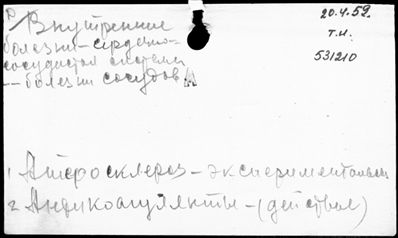 Р/ Внутренние
болезни – сердечно-
сосудистая система
-- болезни сосудов А
20.4.59.
т.и.
531210
1 Атеросклероз – экспериментальн
2 Антикоагулянты – (действие)